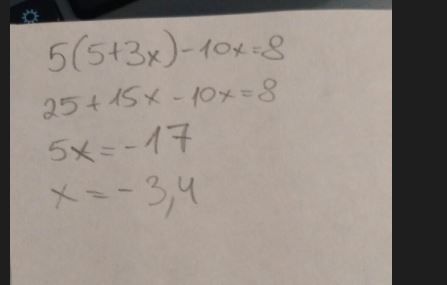 5(5+3x)-10x=8
25+15x-10x=8
5x=-17
x=-3,4